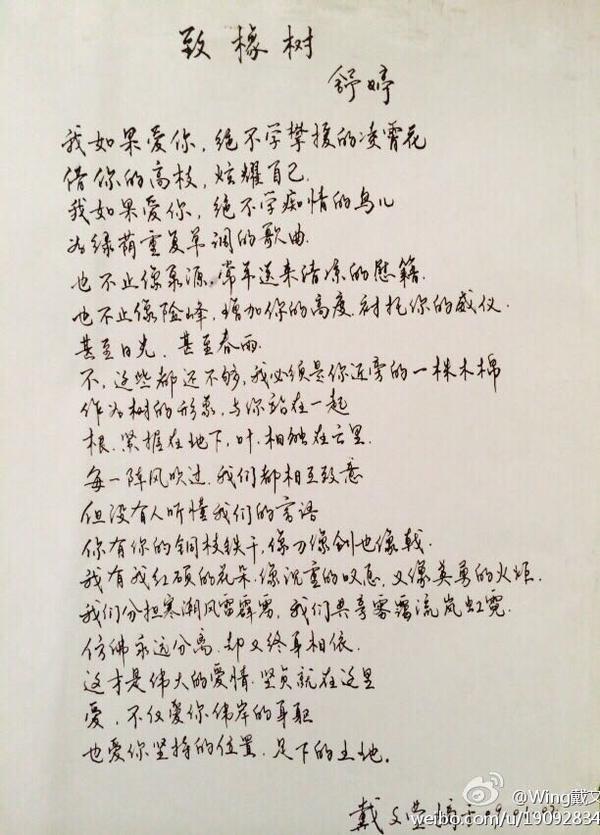 致橡树
舒婷
我如果爱你，绝不学攀援的凌霄花
借你的高枝，炫耀自己.
我如果爱你，绝不学痴情的鸟儿
为绿荫重复单调的歌曲.
也不止像泉源，常年送来清凉的慰籍.
也不止像险峰，增加你的高度，衬托你的威仪.
甚至日光，甚至春雨.
不，这些都还不够，我必须是你近旁的一株木棉
作为树的形象，与你站在一起
根.紧握在地下，叶.相触在云里.
每一阵风吹过.我们都相互致意
但没有人听懂我们的言语
你有你的铜枝铁干，像刀像剑也像戟.
我有我红硕的花朵.像沉重的叹息，又像英勇的火炬.
我们分担寒潮风雷霹雳，我们共享雾霭流岚虹霓.
仿佛永远分离.却又终身相依.
这才是伟大的爱情.坚贞就在这里
爱，不仅爱你伟岸的身躯
也爱你坚持的位置.足下的土地。
戴文
@Wing戴文
weibo.com/u/19092834